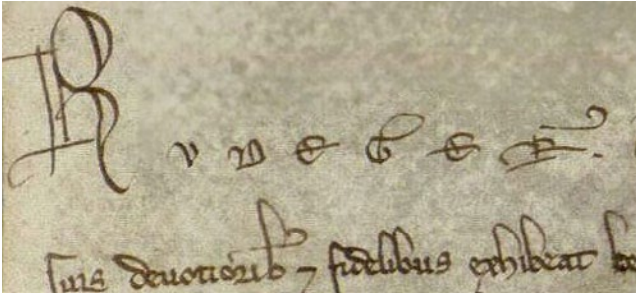 R V D E G E R.
suis deuotiorib⁊ ⁊ fidelibus exhibeat